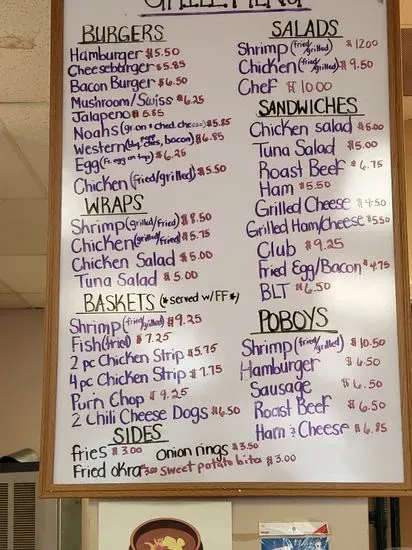 GRILL MENU
BURGERS
Hamburger $5.50
Cheeseburger $5.85
Bacon Burger $6.50
Mushroom/Swiss $6.25
Jalapeno $5.85
Noahs (gr. on & ched. cheese) $5.85
Western (bbq, bacon) $6.85
Egg (Fr. egg on top) $6.25
Chicken (fried/grilled) $5.50
WRAPS
Shrimp (grilled/fried) $8.50
Chicken (grilled/fried) $5.75
Chicken Salad $5.00
Tuna Salad $5.00
BASKETS (*served w/FF*)
Shrimp (fried/grilled) $9.25
Fish (fried) $7.25
2 pc Chicken Strip $5.75
4 pc Chicken Strip $7.75
Pork Chop $9.25
2 Chili Cheese Dogs $6.50
SIDES
fries $3.00 onion rings $3.50
Fried okra $3.00 sweet potato bites $3.00
SALADS
Shrimp (fried/grilled) $12.00
Chicken (fried/grilled) $9.50
Chef $10.00
SANDWICHES
Chicken salad $5.00
Tuna Salad $5.00
Roast Beef $6.75
Ham $5.50
Grilled Cheese $4.50
Grilled Ham/Cheese $5.50
Club $9.25
Fried Egg/Bacon $4.75
BLT $6.50
POBOYS
Shrimp (fried/grilled) $10.50
Hamburger $6.50
Sausage $6.50
Roast Beef $6.50
Ham & Cheese $6.85